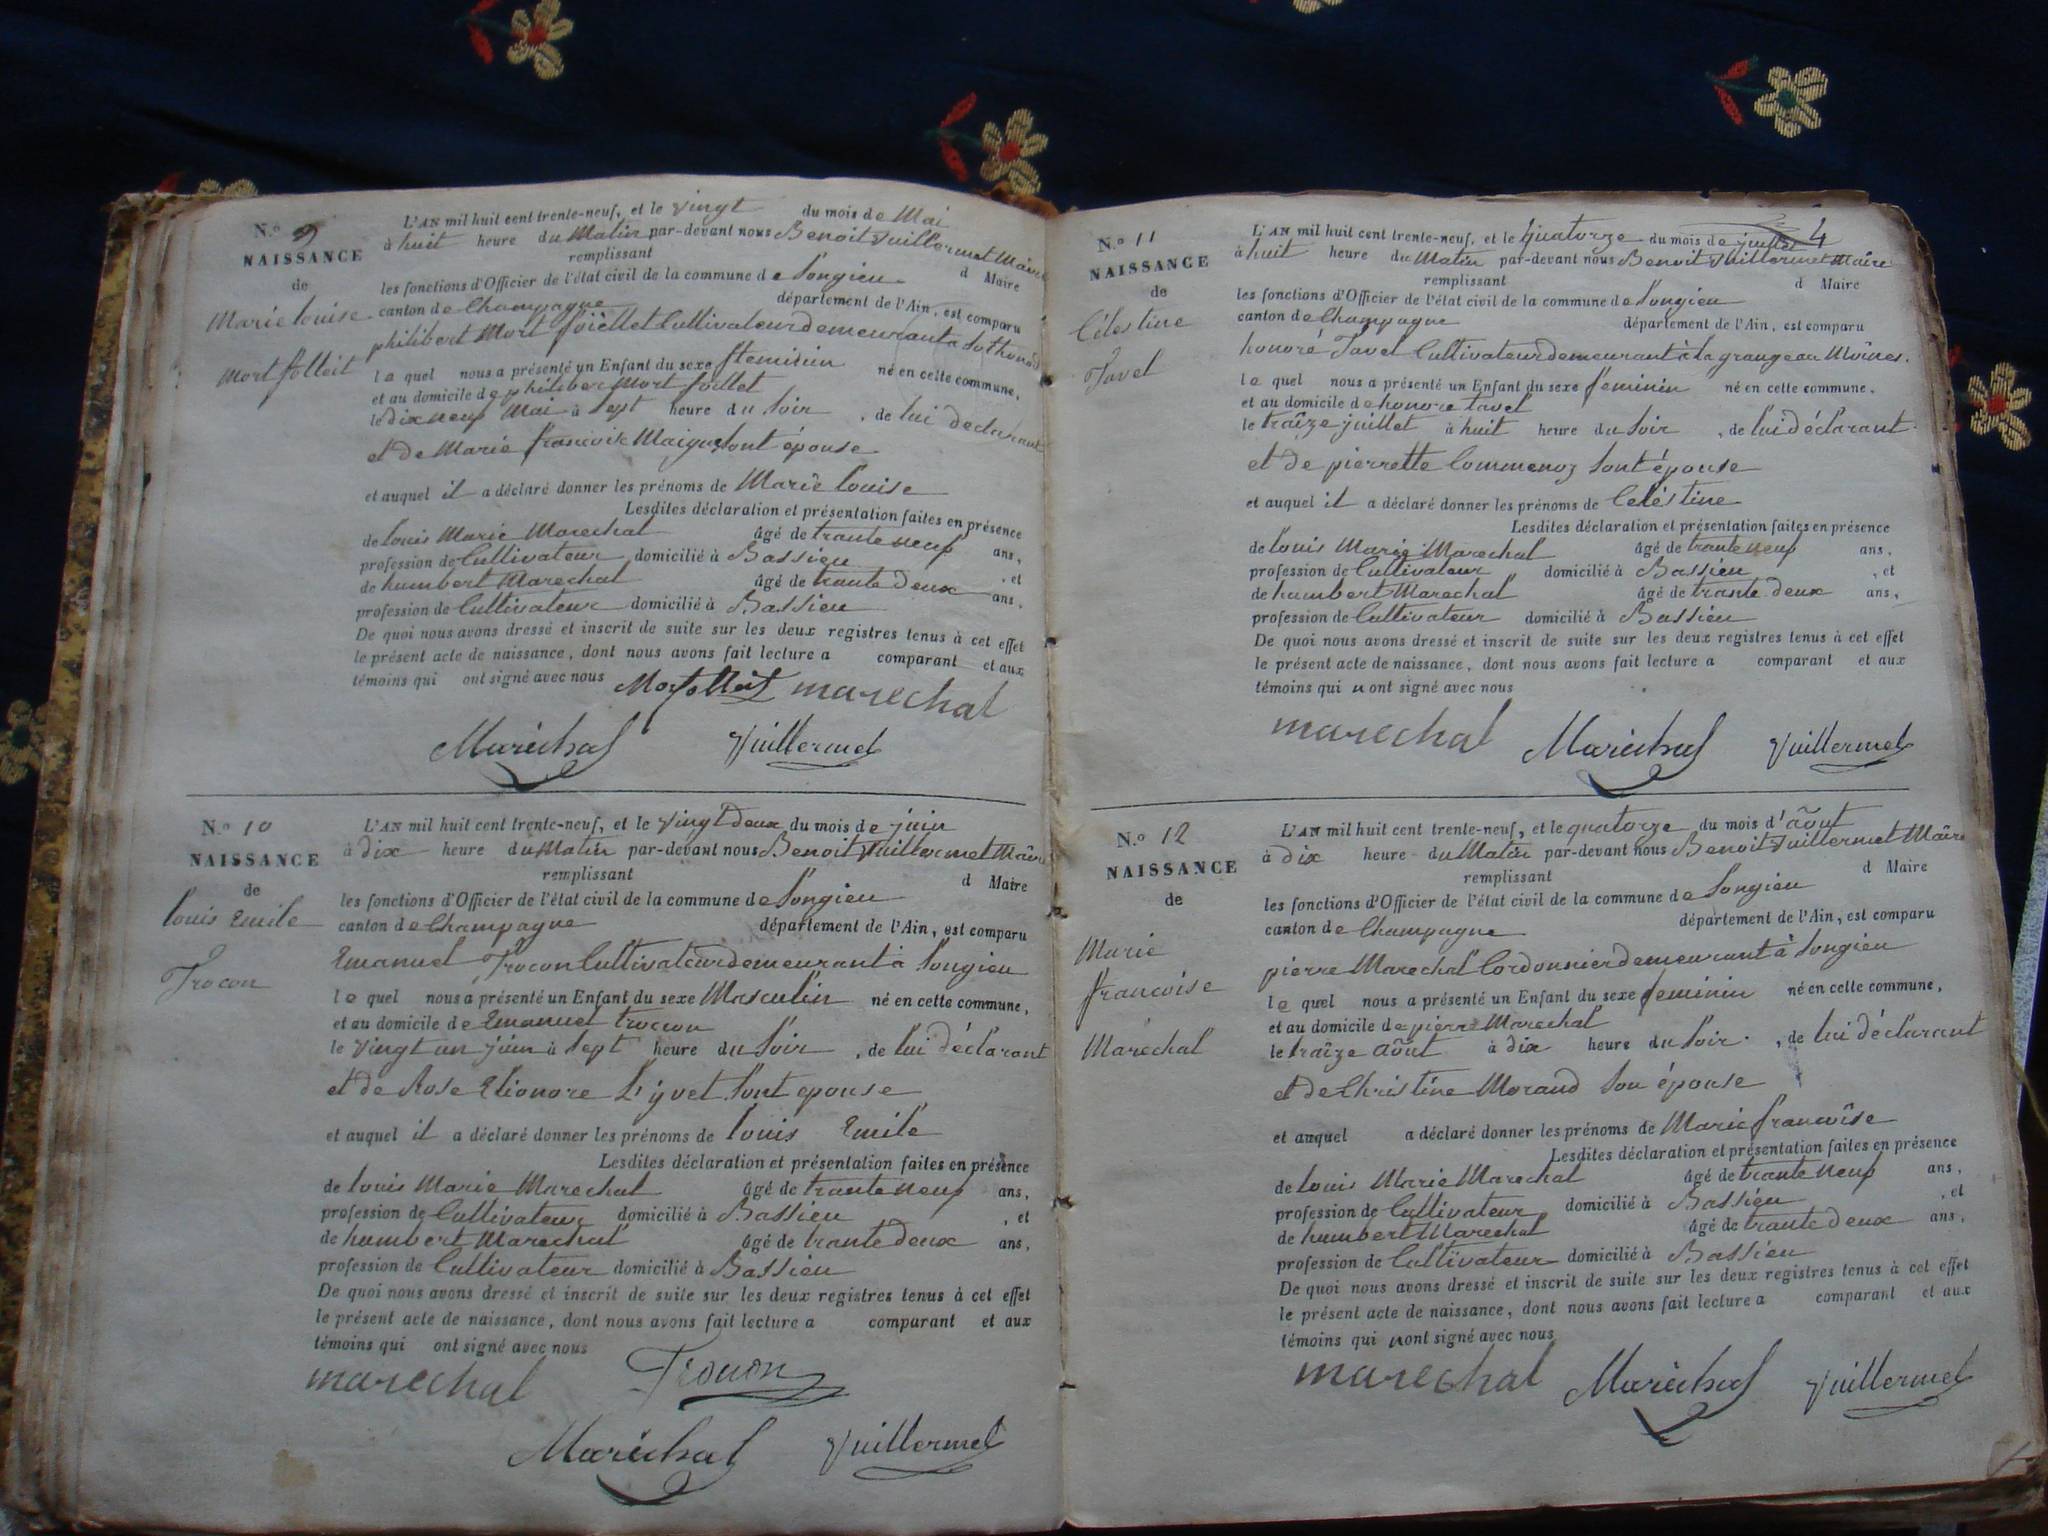 N.º 9
NAISSANCE
de
Marie louise
Mortfolleit
L'AN mil huit cent trente-neuf, et le vingt du mois de Mai
à huit heure du Matin par-devant nous Benoit Vuillermet Maire
remplissant d Maire
les fonctions d'Officier de l'état civil de la commune de Songieu
canton de Champagne département de l'Ain, est comparu
philibert Mort foillet Cultivateur demeurant a Sothonod
le quel nous a présenté un Enfant du sexe feminin né en cette commune,
et au domicile de philiber Mort foillet
le dix neuf Mai à sept heure du Soir , de lui declarant
et de Marie francoise Maiguet sont épouse
et auquel il a déclaré donner les prénoms de Marie louise
Lesdites déclaration et présentation faites en présence
de louis Marie Marechal âgé de trante neuf ans,
profession de Cultivateur domicilié à Bassieu , et
de humbert Marechal âgé de trante deux ans,
profession de Cultivateur domicilié à Bassieu
De quoi nous avons dressé et inscrit de suite sur les deux registres tenus à cet effet
le présent acte de naissance, dont nous avons fait lecture a comparant et aux
témoins qui ont signé avec nous Mortfolleit marechal
Maréchal Vuillermet
N.º 10
NAISSANCE
de
louis Emile
Trocon
L'AN mil huit cent trente-neuf, et le vingt deux du mois de juin
à dix heure du Matin par-devant nous Benoit Vuillermet Maire
remplissant d Maire
les fonctions d'Officier de l'état civil de la commune de Songieu
canton de Champagne département de l'Ain, est comparu
Emanuel Trocon Cultivateur demeurant à Songieu
le quel nous a présenté un Enfant du sexe Masculin né en cette commune,
et au domicile de Emanuel trocon
le vingt un juin à sept heure du Soir , de lui déclarant
et de Rose Elionore L'yvet sont epouse
et auquel il a déclaré donner les prénoms de louis Emile
Lesdites déclaration et présentation faites en présence
de louis Marie Marechal âgé de trante neuf ans,
profession de Cultivateur domicilié à Bassieu , et
de humbert Marechal âgé de trante deux ans,
profession de Cultivateur domicilié à Bassieu
De quoi nous avons dressé et inscrit de suite sur les deux registres tenus à cet effet
le présent acte de naissance, dont nous avons fait lecture a comparant et aux
témoins qui ont signé avec nous
marechal Trocon
Maréchal Vuillermet
4
N.º 11
NAISSANCE
de
Célestine
Tavel
L'AN mil huit cent trente-neuf, et le quatorze du mois de juillet
à huit heure du Matin par-devant nous Benoit Vuillermet Maire
remplissant d Maire
les fonctions d'Officier de l'état civil de la commune de Songieu
canton de Champagne département de l'Ain, est comparu
honoré Tavel Cultivateur demeurant à la grange au Moines.
le quel nous a présenté un Enfant du sexe feminin né en cette commune,
et au domicile de honore tavel
le traîze juillet à huit heure du Soir , de lui déclarant
et de pierrette Commenoz sont épouse
et auquel il a déclaré donner les prénoms de Celéstine
Lesdites déclaration et présentation faites en présence
de louis Marie Marechal âgé de trante neuf ans,
profession de Cultivateur domicilié à Bassieu , et
de humbert Marechal âgé de trante deux ans,
profession de Cultivateur domicilié à Bassieu
De quoi nous avons dressé et inscrit de suite sur les deux registres tenus à cet effet
le présent acte de naissance, dont nous avons fait lecture a comparant et aux
témoins qui n ont signé avec nous
marechal Maréchal Vuillermet
N.º 12
NAISSANCE
de
Marie
francoise
Maréchal
L'AN mil huit cent trente-neuf, et le quatorze du mois d'août
à dix heure du Matin par-devant nous Benoit Vuillermet Maire
remplissant d Maire
les fonctions d'Officier de l'état civil de la commune de Songieu
canton de Champagne département de l'Ain, est comparu
pierre Marechal Cordonnier demeurant à Songieu
le quel nous a présenté un Enfant du sexe feminin né en cette commune,
et au domicile de pierre Marechal
le traîze août à dix heure du Soir , de lui déclarant
et de Christine Morand son épouse
et auquel a déclaré donner les prénoms de Marie francoise
Lesdites déclaration et présentation faites en présence
de louis Marie Marechal âgé de trante neuf ans,
profession de Cultivateur domicilié à Bassieu , et
de humbert Marechal âgé de trante deux ans,
profession de Cultivateur domicilié à Bassieu
De quoi nous avons dressé et inscrit de suite sur les deux registres tenus à cet effet
le présent acte de naissance, dont nous avons fait lecture a comparant et aux
témoins qui n ont signé avec nous
marechal Maréchal Vuillermet